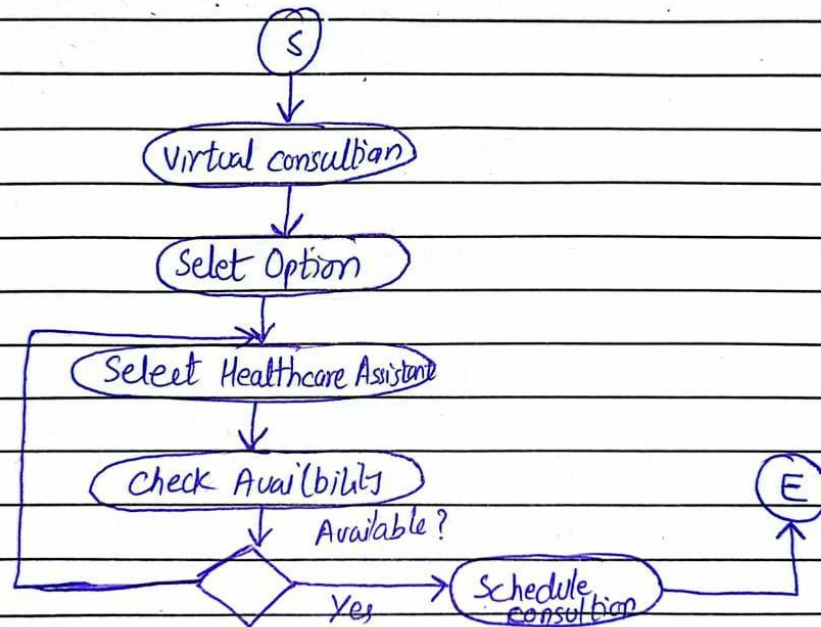 S
Virtual consultian
Selet Option
Select Healthcare Assistant
Check Availbility
Available?
E
Yes
Schedule
consultion